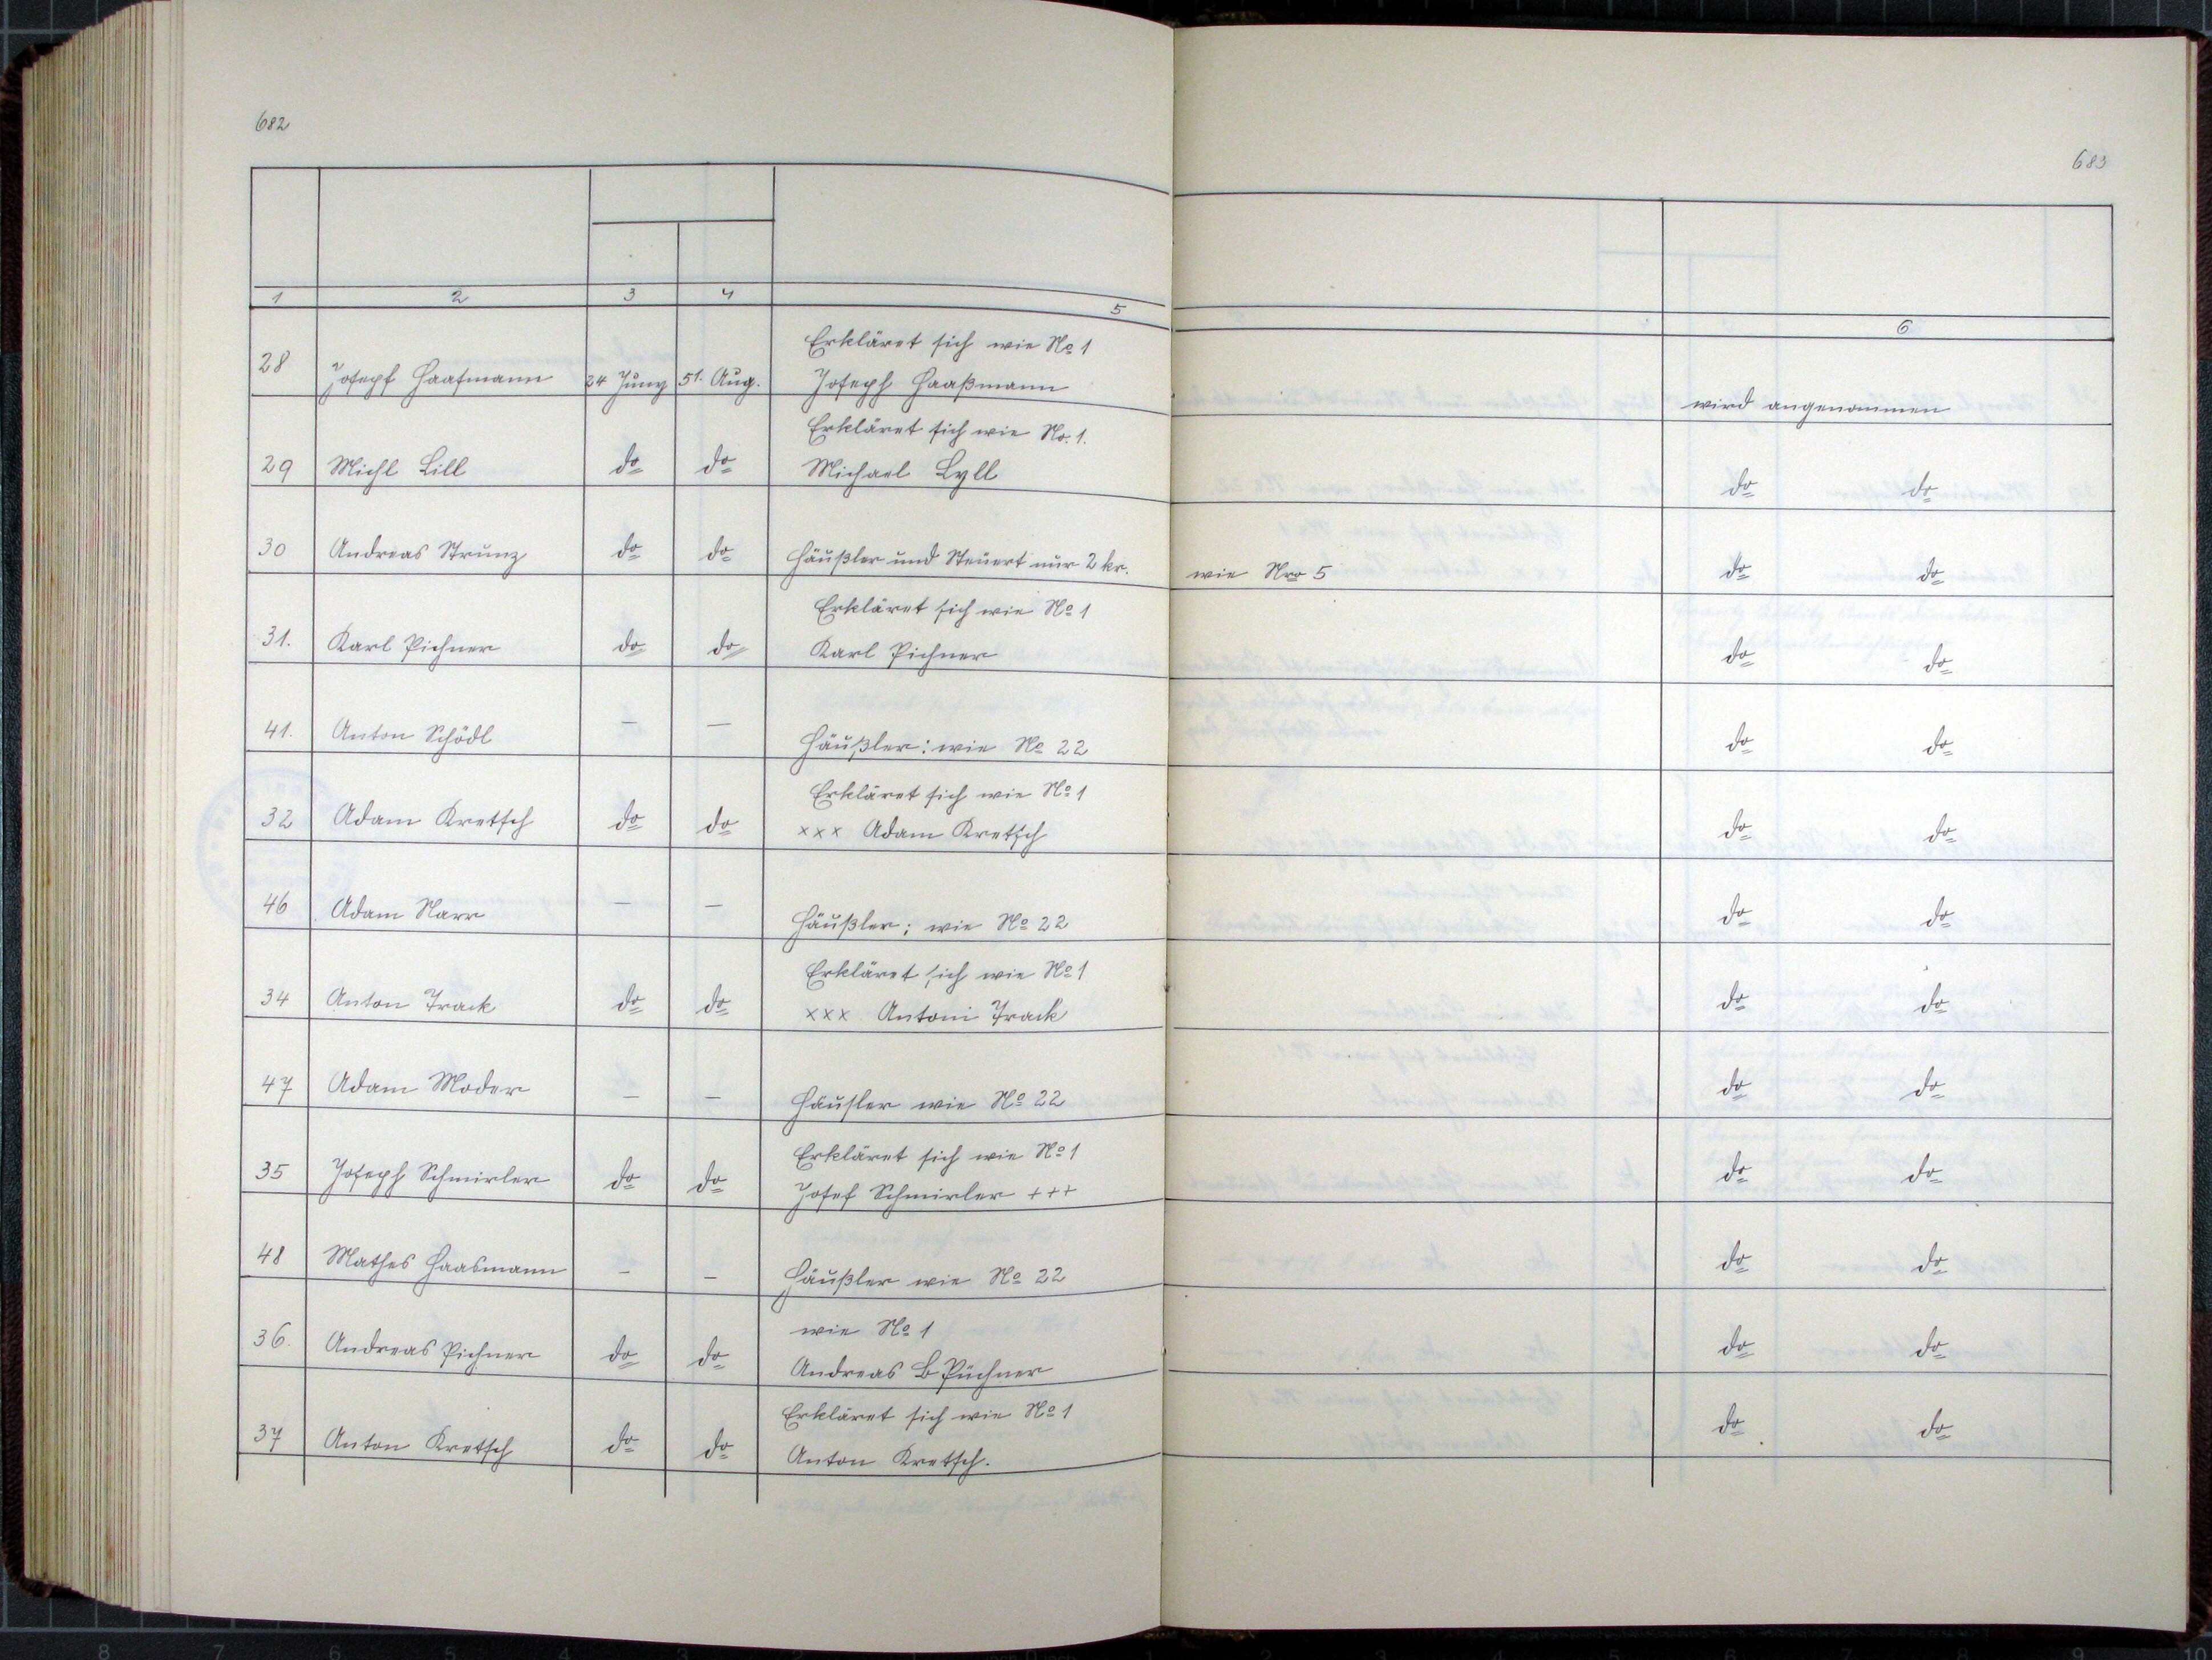 682
683
1 2 3 4 5 6
Erkläret sich wie No 1
28 Joseph Haasmann 24 Juny 51. Aug. Joseph Haaßmann wird angenommen
Erkläret sich wie No. 1.
29 Michl Lill do do Michael Lyll do do
30 Andreas Strunz do do Häußler und Steuert nur 2 kr. wie Nro 5 do do
Erkläret sich wie No 1
31. Karl Pichner do do Karl Pichner do do
41. Anton Schödl — — Häußler: wie No 22 do do
Erkläret sich wie No 1
32 Adam Kretsch do do xxx Adam Kretsch do do
46 Adam Narr — — Häußler; wie No 22 do do
Erkläret sich wie No 1
34 Anton Track do do xxx Antoni Track do do
47 Adam Moder — — Häusler wie No 22 do do
Erkläret sich wie No 1
35 Joseph Schmirler do do Josef Schmirler +++ do do
48 Mathes Haasmann — — Häußler wie No 22 do do
wie No 1
36. Andreas Pichner do do Andreas B Püchner do do
Erkläret sich wie No 1
37 Anton Kretsch do do Anton Kretsch. do do